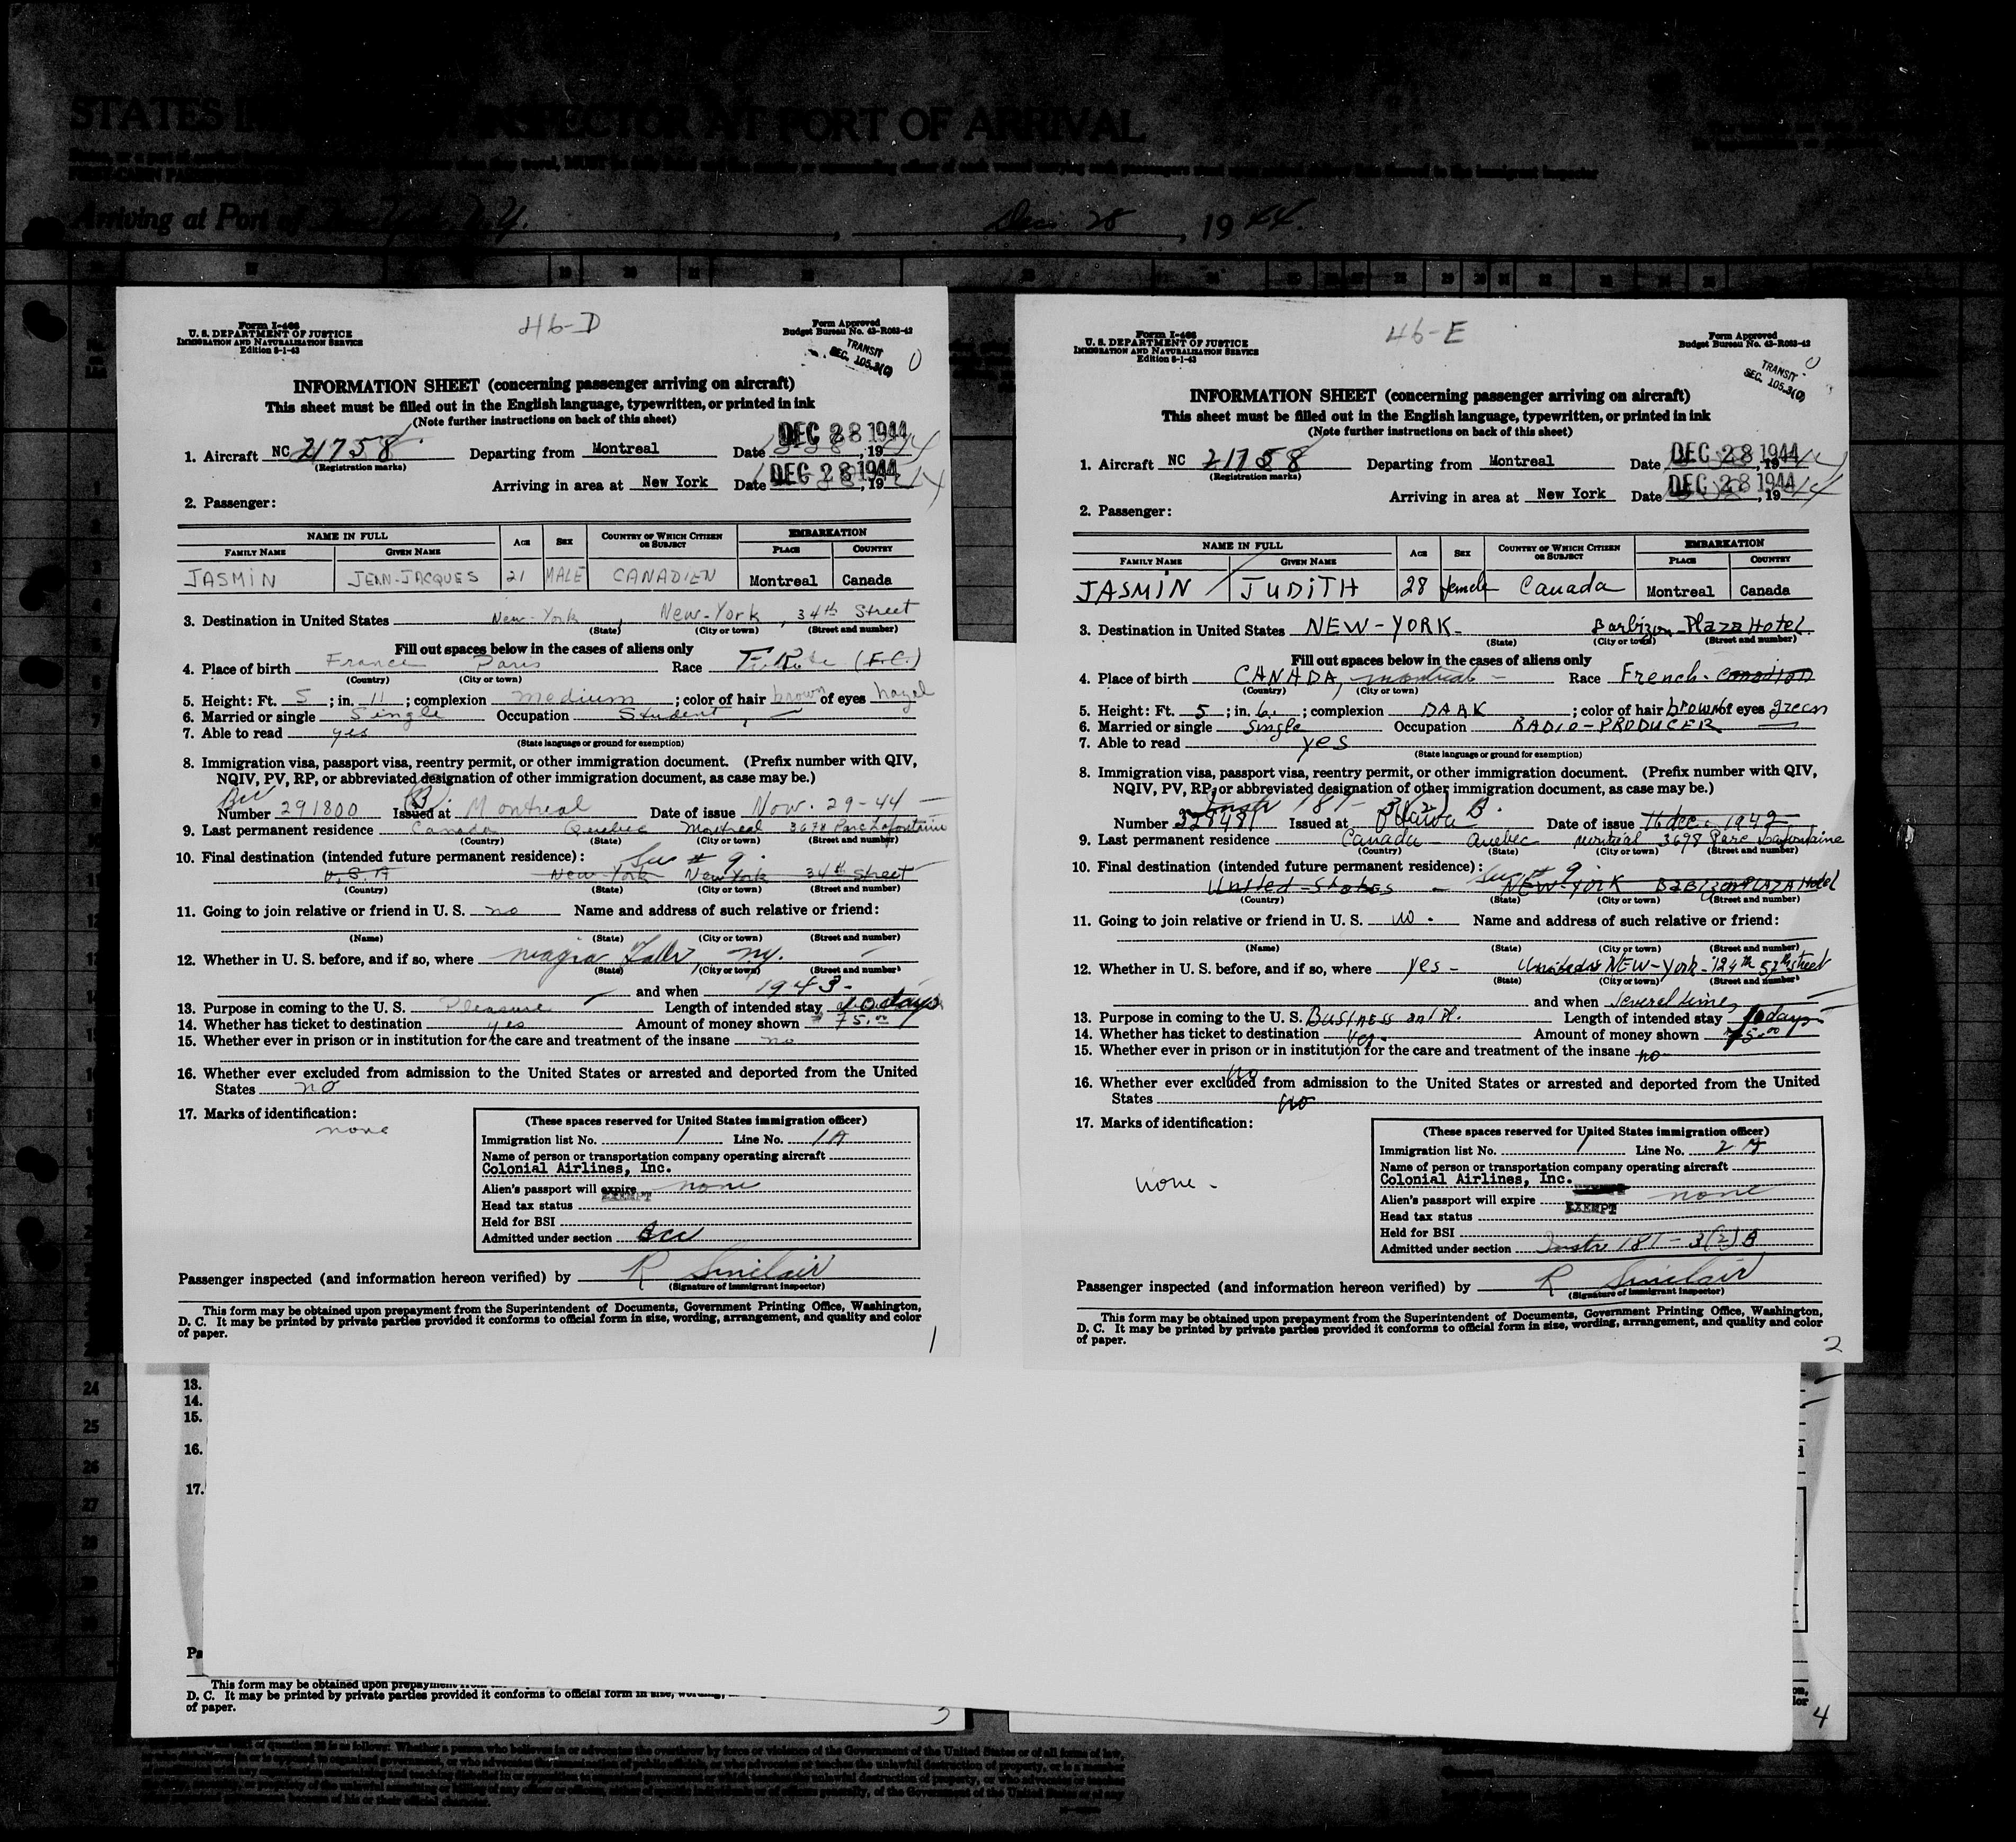 STATES INSPECTOR AT PORT OF ARRIVAL
Arriving at Port of New York, N.Y. , Dec 28 , 19 44.
Form I-466
U. S. DEPARTMENT OF JUSTICE
IMMIGRATION AND NATURALIZATION SERVICE
Edition 8-1-43
46-D
Form Approved
Budget Bureau No. 43-R083-42
TRANSIT
SEC. 105.3(0)
INFORMATION SHEET (concerning passenger arriving on aircraft)
This sheet must be filled out in the English language, typewritten, or printed in ink
(Note further instructions on back of this sheet)
1. Aircraft NC 21758 Departing from Montreal Date DEC 28 1944, 19
(Registration marks)
Arriving in area at New York Date DEC 28 1944, 19
2. Passenger:
NAME IN FULL AGE SEX COUNTRY OF WHICH CITIZEN OR SUBJECT EMBARKATION
FAMILY NAME GIVEN NAME PLACE COUNTRY
JASMIN JEAN-JACQUES 21 MALE CANADIEN Montreal Canada
3. Destination in United States New-York , New-York , 34th Street
(State) (City or town) (Street and number)
Fill out spaces below in the cases of aliens only
4. Place of birth France Paris Race (F.C.)
(Country) (City or town)
5. Height: Ft. 5 ; in. 11 ; complexion medium ; color of hair brown of eyes hazel
6. Married or single Single Occupation Student
7. Able to read yes
(State language or ground for exemption)
8. Immigration visa, passport visa, reentry permit, or other immigration document. (Prefix number with QIV,
NQIV, PV, RP, or abbreviated designation of other immigration document, as case may be.)
Number 291800 Issued at Montreal Date of issue Nov. 29-44
9. Last permanent residence Canada Quebec Montreal 3698 Parc Lafontaine
(Country) (State) (City or town) (Street and number)
10. Final destination (intended future permanent residence): See # 9.
U.S.A New-York New York 34th Street
(Country) (State) (City or town) (Street and number)
11. Going to join relative or friend in U. S. no Name and address of such relative or friend:
(Name) (State) (City or town) (Street and number)
12. Whether in U. S. before, and if so, where Niagra Falls, N.Y.
(State) (City or town) (Street and number)
and when 1943-
13. Purpose in coming to the U. S. Pleasure Length of intended stay 10 days
14. Whether has ticket to destination yes Amount of money shown $ 75.00
15. Whether ever in prison or in institution for the care and treatment of the insane no
16. Whether ever excluded from admission to the United States or arrested and deported from the United
States no
17. Marks of identification:
none
(These spaces reserved for United States immigration officer)
Immigration list No. 1 Line No. 1A
Name of person or transportation company operating aircraft
Colonial Airlines, Inc.
Alien's passport will expire none
EXEMPT
Head tax status
Held for BSI
Admitted under section BCC
Passenger inspected (and information hereon verified) by R Sinclair
(Signature of immigrant inspector)
This form may be obtained upon prepayment from the Superintendent of Documents, Government Printing Office, Washington,
D. C. It may be printed by private parties provided it conforms to official form in size, wording, arrangement, and quality and color
of paper.
1
Form I-466
U. S. DEPARTMENT OF JUSTICE
IMMIGRATION AND NATURALIZATION SERVICE
Edition 8-1-43
46-E
Form Approved
Budget Bureau No. 43-R083-42
TRANSIT
SEC. 105.3(0)
INFORMATION SHEET (concerning passenger arriving on aircraft)
This sheet must be filled out in the English language, typewritten, or printed in ink
(Note further instructions on back of this sheet)
1. Aircraft NC 21758 Departing from Montreal Date DEC 28 1944, 19
(Registration marks)
Arriving in area at New York Date DEC 28 1944, 19
2. Passenger:
NAME IN FULL AGE SEX COUNTRY OF WHICH CITIZEN OR SUBJECT EMBARKATION
FAMILY NAME GIVEN NAME PLACE COUNTRY
JASMIN JUDITH 28 female Canada Montreal Canada
3. Destination in United States NEW-YORK- Barbizon-Plaza Hotel
(State) (City or town) (Street and number)
Fill out spaces below in the cases of aliens only
4. Place of birth CANADA, montreal - Race French-Canadian
(Country) (City or town)
5. Height: Ft. 5 ; in. 6. ; complexion DARK ; color of hair brown of eyes green
6. Married or single Single Occupation RADIO-PRODUCER
7. Able to read yes
(State language or ground for exemption)
8. Immigration visa, passport visa, reentry permit, or other immigration document. (Prefix number with QIV,
NQIV, PV, RP, or abbreviated designation of other immigration document, as case may be.)
Instr 181-3(2)B.
Number 328481 Issued at Ottawa Date of issue 16 dec. 1942
9. Last permanent residence Canada - Quebec montreal 3698 Parc Lafontaine
(Country) (State) (City or town) (Street and number)
10. Final destination (intended future permanent residence): See # 9
United-States - NEW-YORK BARBIZON PLAZA Hotel
(Country) (State) (City or town) (Street and number)
11. Going to join relative or friend in U. S. no. Name and address of such relative or friend:
(Name) (State) (City or town) (Street and number)
12. Whether in U. S. before, and if so, where yes - NEW-York- 57th street
(State) (City or town) (Street and number)
and when several times
13. Purpose in coming to the U. S. BUSINESS and Pl. Length of intended stay 10 days
14. Whether has ticket to destination yes. Amount of money shown 75.00
15. Whether ever in prison or in institution for the care and treatment of the insane no
no
16. Whether ever excluded from admission to the United States or arrested and deported from the United
States no
17. Marks of identification:
none-
(These spaces reserved for United States immigration officer)
Immigration list No. 1 Line No. 2A
Name of person or transportation company operating aircraft
Colonial Airlines, Inc.
Alien's passport will expire none
EXEMPT
Head tax status
Held for BSI
Admitted under section Instr 181-3(2)B
Passenger inspected (and information hereon verified) by R Sinclair
(Signature of immigrant inspector)
This form may be obtained upon prepayment from the Superintendent of Documents, Government Printing Office, Washington,
D. C. It may be printed by private parties provided it conforms to official form in size, wording, arrangement, and quality and color
of paper.
2
13.
14.
15.
16.
17.
24
25
26
27
28
This form may be obtained upon prepayment
D. C. It may be printed by private parties provided it conforms to official form in size,
of paper.
4